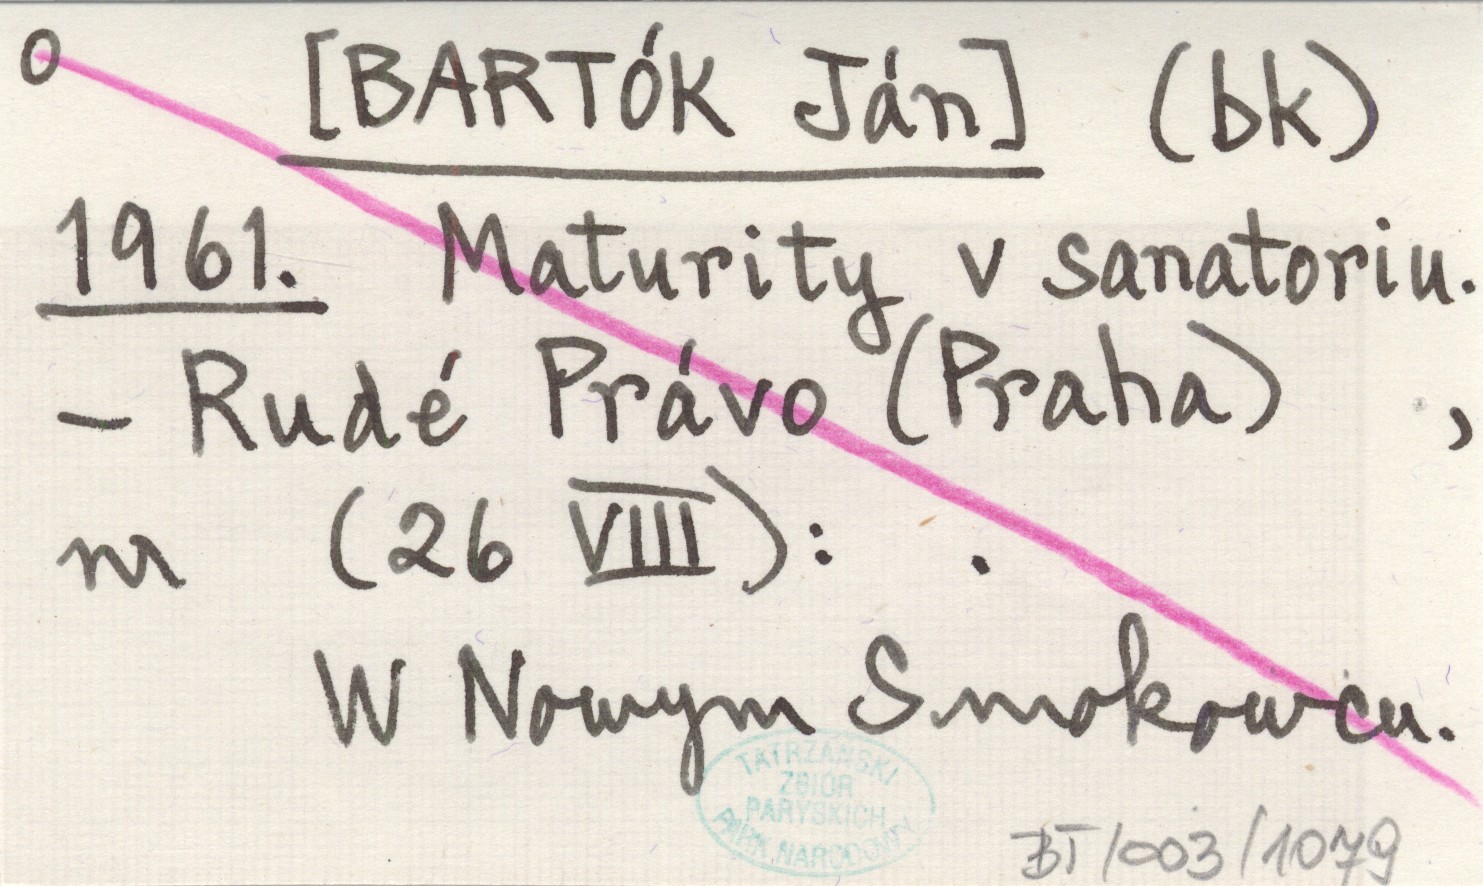 o [BARTÓK Ján] (bk)
1961. Maturity v sanatoriu.
– Rudé Právo (Praha) ,
nr (26 VIII): .
W Nowym Smokowcu.
TATRZAŃSKI
ZBIÓR
PARYSKICH
PARK NARODOWY
BT/003/1079